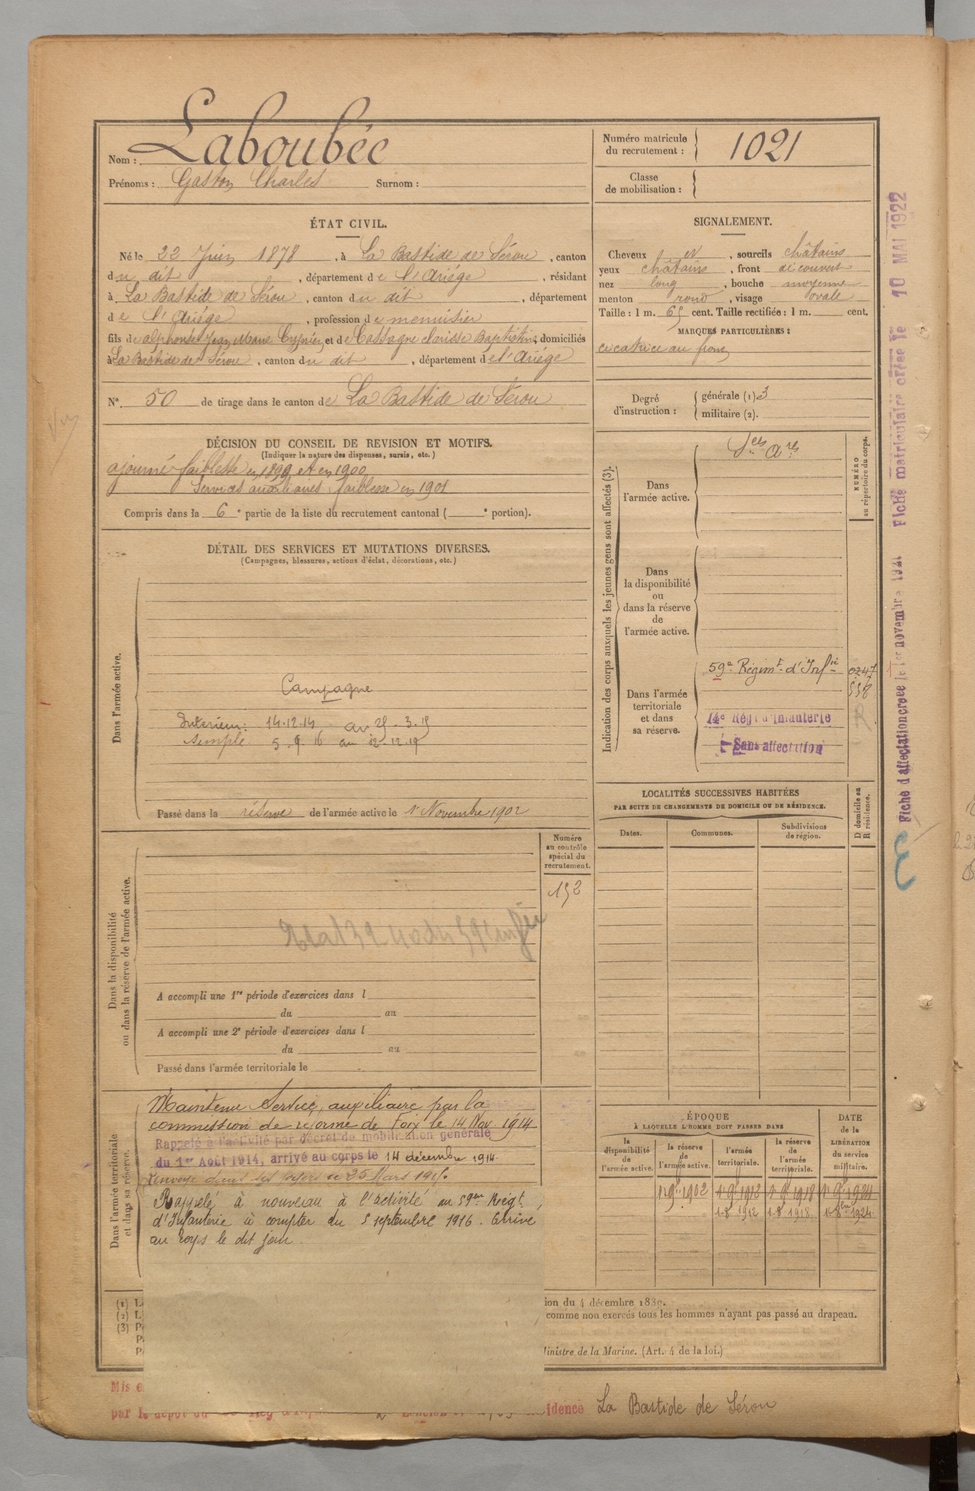 Nom : Laboubée
Prénoms : Gaston Charles Surnom :
Numéro matricule du recrutement : 1021
Classe de mobilisation :
ÉTAT CIVIL.
Né le 22 Juin 1878, à La Bastide de Sérou, canton
du dit, département de l'Ariége, résidant
à La Bastide de Sérou, canton du dit, département
de l'Ariége, profession de menuisier
fils de Alphonse Jean et de Baptistine domiciliés
à La Bastide de Sérou, canton du dit, département de l'Ariége
N° 50 de tirage dans le canton de La Bastide de Sérou
SIGNALEMENT.
Cheveux et, sourcils châtains
yeux châtains, front découvert
nez long, bouche moyenne
menton rond, visage ovale
Taille : 1 m. 65 cent. Taille rectifiée : 1 m. cent.
MARQUES PARTICULIÈRES :
cicatrice au front
Degré d'instruction : générale (1) 3
militaire (2).
DÉCISION DU CONSEIL DE REVISION ET MOTIFS.
(Indiquer la nature des dispenses, sursis, etc.)
ajourné faiblesse en 1899 et en 1900
Services auxiliaires faiblesse en 1901
Compris dans la 6e partie de la liste du recrutement cantonal ( e portion).
DÉTAIL DES SERVICES ET MUTATIONS DIVERSES.
(Campagnes, blessures, actions d'éclat, décorations, etc.)
Dans l'armée active.
Campagne
Intérieur : 14.12.14 au 25.3.15
simple 5.9.16 au
Passé dans la réserve de l'armée active le 1er Novembre 1902
Indication des corps auxquels les jeunes gens sont affectés (3).
Dans l'armée active.
NUMÉRO au répertoire du corps.
Dans la disponibilité ou dans la réserve de l'armée active.
Dans l'armée territoriale et dans sa réserve.
59e Regimt d'Infie
14e Régt d'Infanterie
Sans affectation
LOCALITÉS SUCCESSIVES HABITÉES
PAR SUITE DE CHANGEMENTS DE DOMICILE OU DE RÉSIDENCE.
D domicile ou R résidence.
Dates. Communes. Subdivisions de région.
Dans la disponibilité ou dans la réserve de l'armée active.
Numéro au contrôle spécial du recrutement.
A accompli une 1re période d'exercices dans l
du au
A accompli une 2e période d'exercices dans l
du au
Passé dans l'armée territoriale le
Dans l'armée territoriale et dans sa réserve.
Maintenu Service auxiliaire par la
commission de réforme de Foix le 14 Nov. 1914
Rappelé à l'activité par décret de mobilisation générale
du 1er Août 1914, arrivé au corps le 14 décembre 1914.
Renvoyé dans ses foyers le 25 Mars 1915.
Rappelé à nouveau à l'activité au 59me Régt
d'Infanterie à compter du 5 septembre 1916. Arrivé
au corps le dit jour.
ÉPOQUE
À LAQUELLE L'HOMME DOIT PASSER DANS
la disponibilité de l'armée active.
la réserve de l'armée active.
l'armée territoriale.
la réserve de l'armée territoriale.
DATE de la LIBÉRATION du service militaire.
ion du 4 décembre 1889.
comme non exercés tous les hommes n'ayant pas passé au drapeau.
Ministre de la Marine. (Art. 4 de la loi.)
La Bastide de Sérou
Fiche d'affectation créée le 1er novembre 1921 Fiche matriculaire créée le 10 MAI 1922